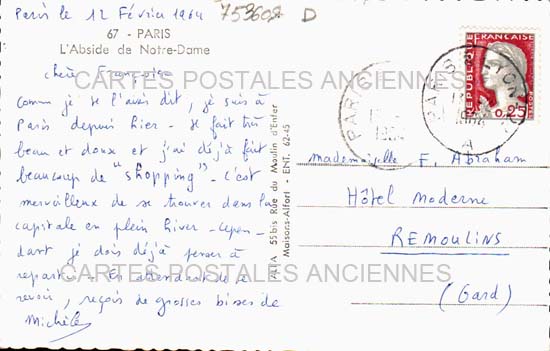 Paris le 12 Février 1964
753602 D
67 - PARIS
L'Abside de Notre-Dame
chère Françoise
Comme je te l'avais dit, je suis à
Paris depuis hier - Il fait très
beau et doux et j'ai déjà fait
beaucoup de "shopping" - C'est
merveilleux de se trouver dans la
capitale en plein hiver - Cepen-
dant je dois déjà penser à
repartir - En attendant de te
revoir, reçois de grosses bises de
Michèle
PATA 55bis Rue du Moulin d'Enfer
Maisons-Alfort - ENT. 62-45
REPUBLIQUE FRANÇAISE
0,25
PARIS
PARIS
LYON
A
mademoiselle F. Abraham
Hôtel Moderne
REMOULINS
(Gard)
CARTES POSTALES ANCIENNES
CARTES POSTALES ANCIENNES